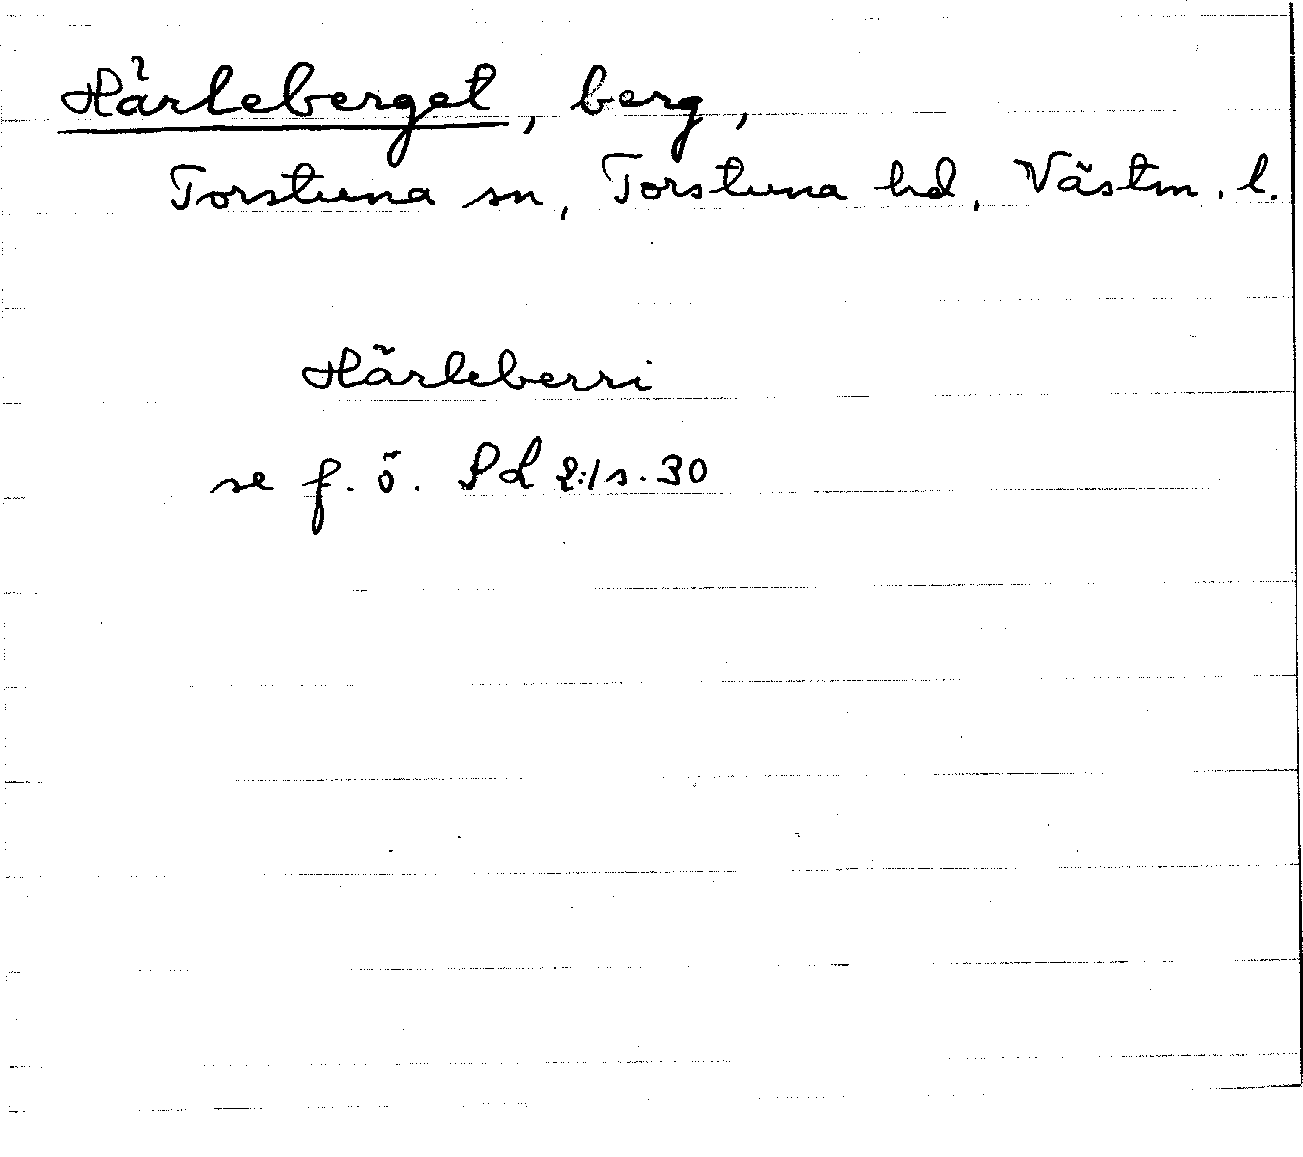 Härleberget, berg,
Torstuna sn, Torstuna hd, Västm. l.
Härleberri
se f. ö. SL 2:1 s. 30